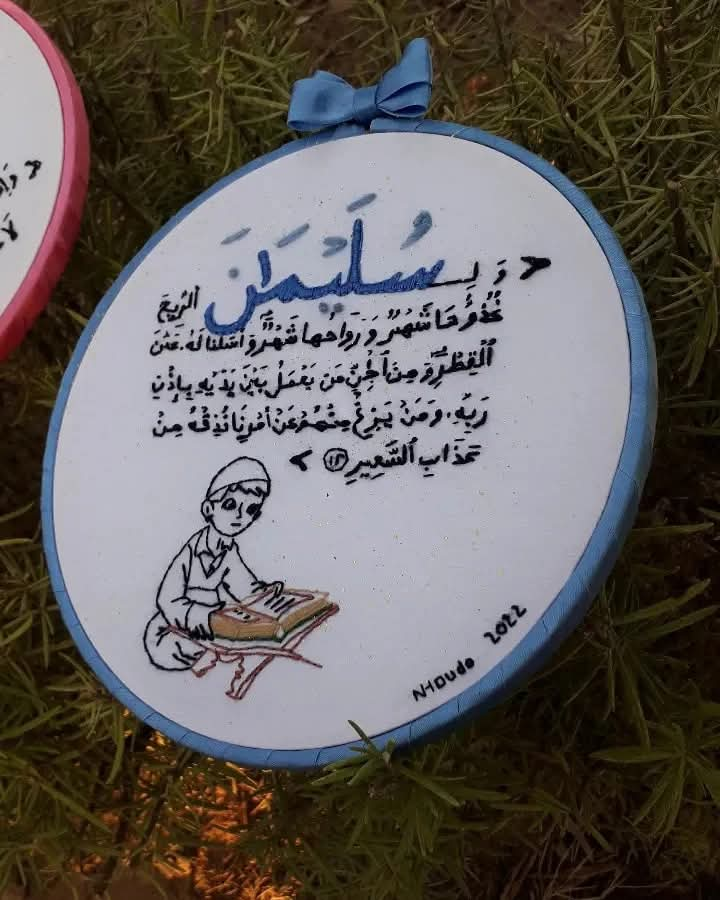 < وَ لِسُلَيْمَٰنَ ٱلرِّيحَ
غُدُوُّهَا شَهْرٌ وَرَوَاحُها شَهْرٌ وَأَسَلْنَا لَهُۥ عَيْنَ
ٱلْقِطْرِ وَمِنَ ٱلْجِنِّ مَن يَعْمَلُ بَيْنَ يَدَيْهِ بِإِذْنِ
رَبِّهِۦ وَمَنْ يَزِغْ مِنْهُمْ عَنْ أَمْرِنَا نُذِقْهُ مِنْ
عَذَابِ ٱلسَّعِيرِ ١٢ >
N-IDudo 2022